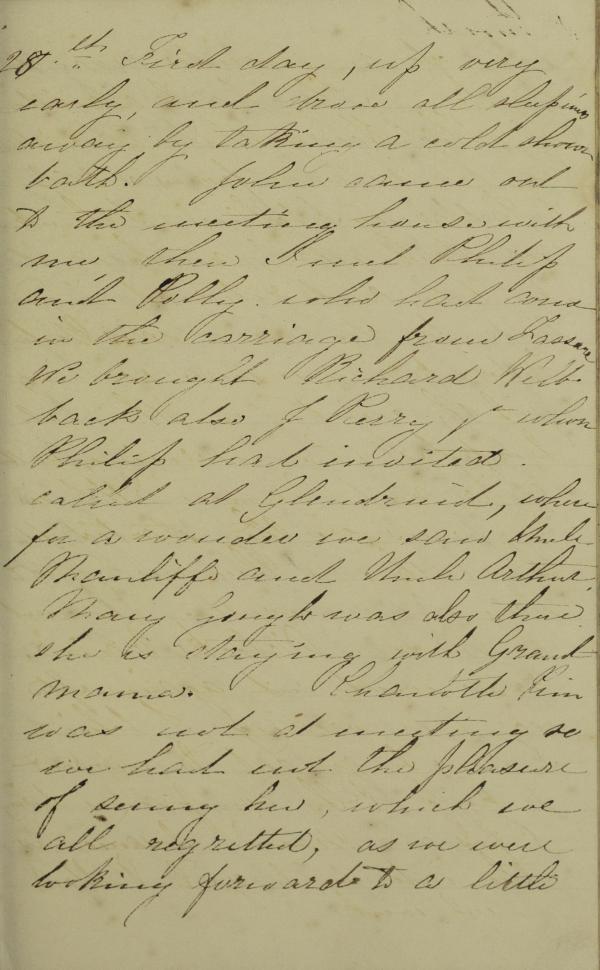 28.th First day, up very
early, and drove all sleepiness
away by taking a cold shower
bath. John came out
to the meeting house with
me, then I met Philip
and Polly who had come
in the carriage from
We brought Richard Webb
back also J Perry jr whom
Philip had invited.
called at Glendruid, where
for a wonder we saw Uncle
and Uncle Arthur,
Mary Gough was also there
she is staying with Grand
mama. Charlotte Pim
was not at meeting so
we had not the pleasure
of seeing her, which we
all regretted, as we were
looking forward to a little